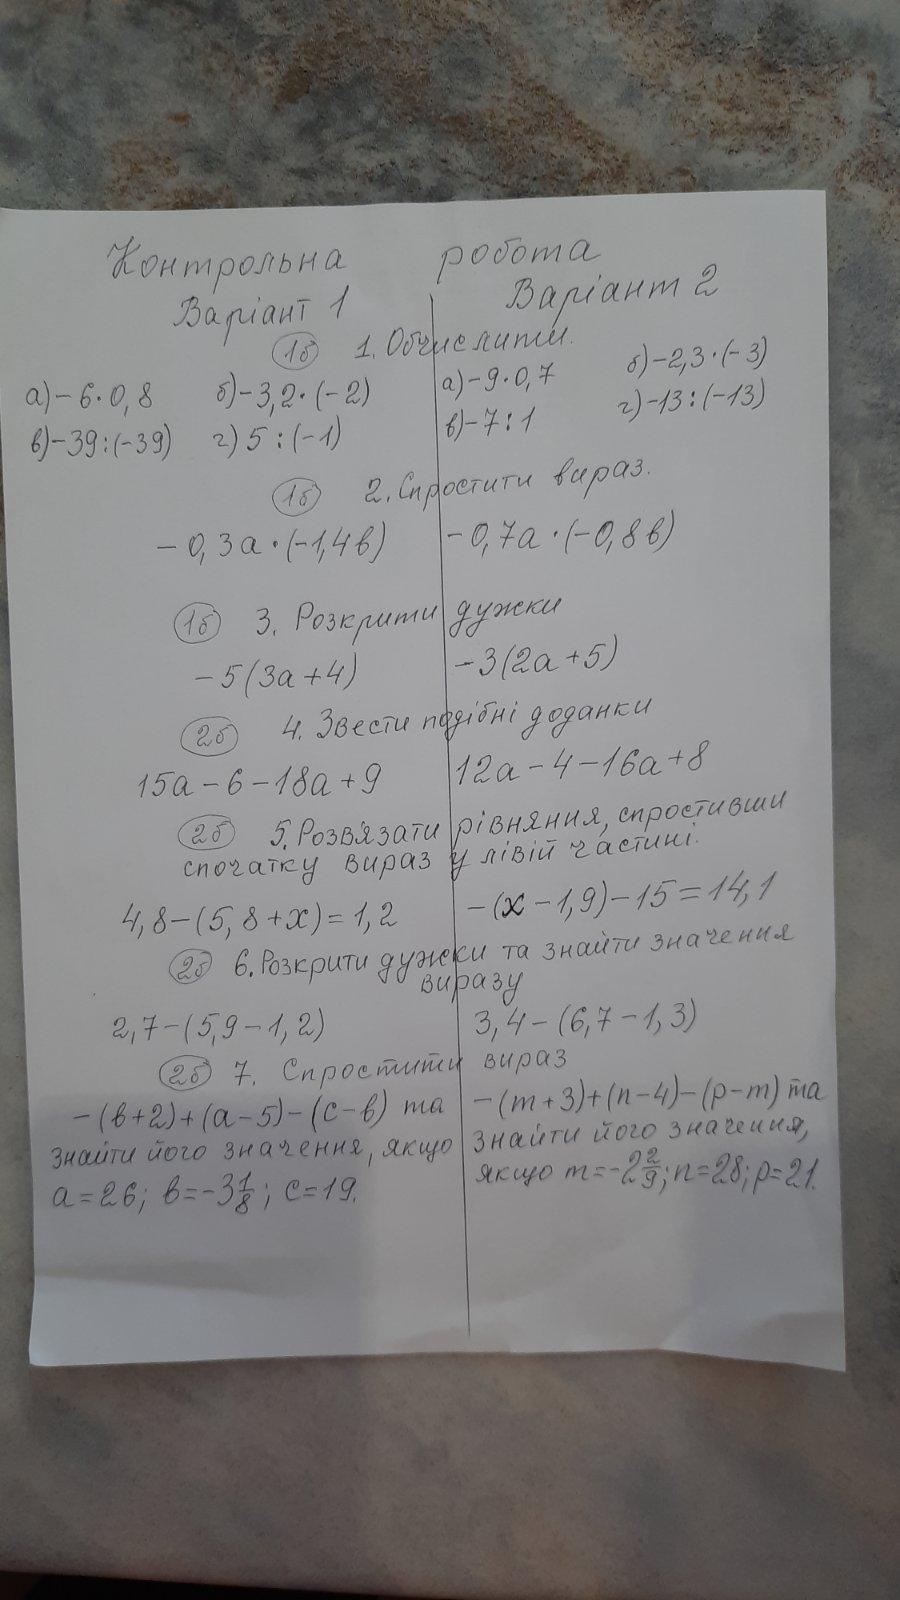 Контрольна робота
Варіант 1 Варіант 2
1б 1. Обчислити.
а) -6·0,8 б) -3,2·(-2) а) -9·0,7 б) -2,3·(-3)
в) -39:(-39) г) 5:(-1) в) -7:1 г) -13:(-13)
1б 2. Спростити вираз.
-0,3а·(-1,4в) -0,7а·(-0,8в)
1б 3. Розкрити дужки
-5(3а+4) -3(2а+5)
2б 4. Звести подібні доданки
15а-6-18а+9 12а-4-16а+8
2б 5. Розв'язати рівняння, спростивши
спочатку вираз у лівій частині.
4,8-(5,8+x)=1,2 -(x-1,9)-15=14,1
2б 6. Розкрити дужки та знайти значення
виразу
2,7-(5,9-1,2) 3,4-(6,7-1,3)
2б 7. Спростити вираз
-(в+2)+(а-5)-(с-в) та -(m+3)+(n-4)-(p-m) та
знайти його значення, якщо знайти його значення,
а=26; в=-3 1/8; с=19. якщо m=-2 2/9; n=28; p=21.